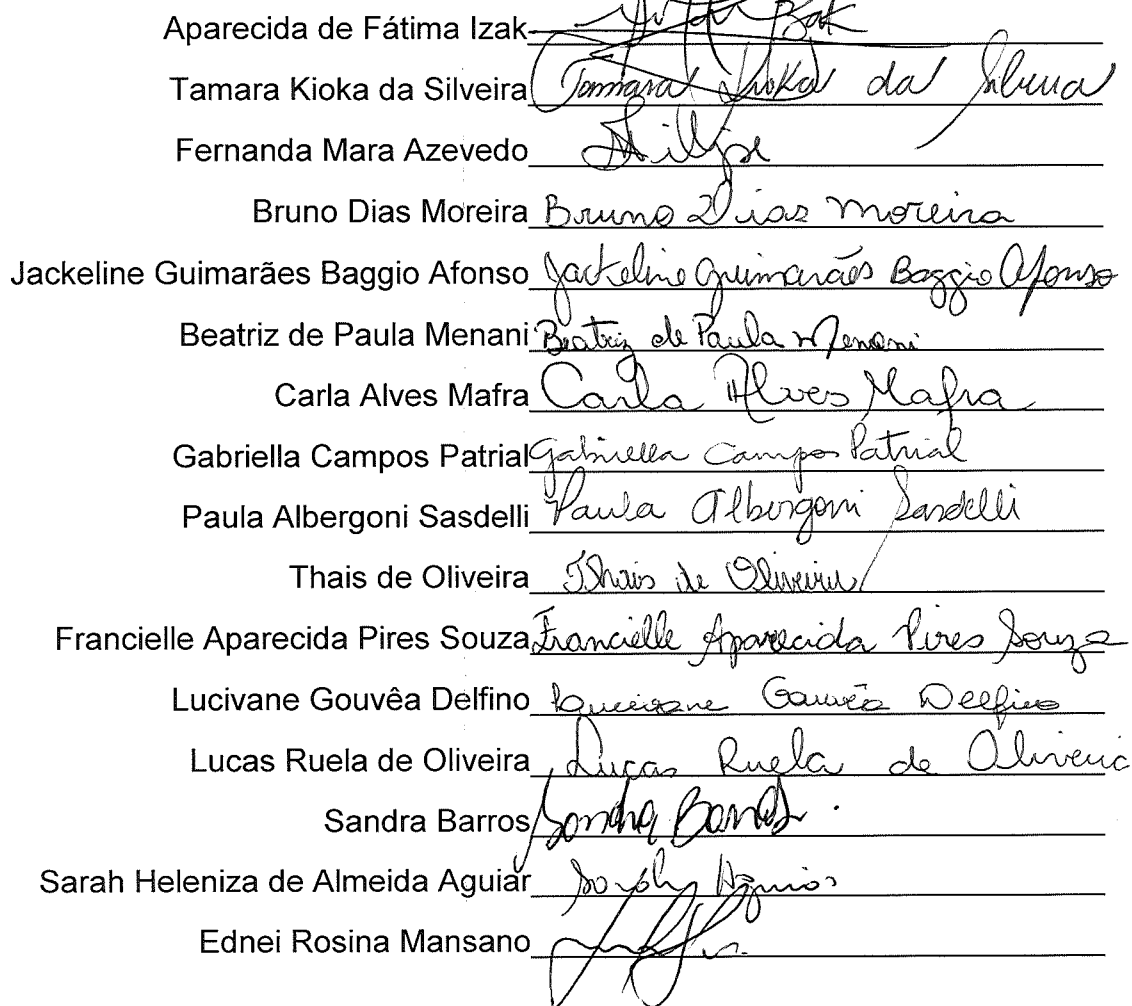 Aparecida de Fátima Izak
Tamara Kioka da Silveira Tamara Kioka da Silveira
Fernanda Mara Azevedo
Bruno Dias Moreira Bruno Dias Moreira
Jackeline Guimarães Baggio Afonso Jackeline Guimarães Baggio Afonso
Beatriz de Paula Menani Beatriz de Paula Menani
Carla Alves Mafra Carla Alves Mafra
Gabriella Campos Patrial Gabriella Campos Patrial
Paula Albergoni Sasdelli Paula Albergoni Sasdelli
Thais de Oliveira Thais de Oliveira
Francielle Aparecida Pires Souza Francielle Aparecida Pires Souza
Lucivane Gouvêa Delfino Lucivane Gouvêa Delfino
Lucas Ruela de Oliveira Lucas Ruela de Oliveira
Sandra Barros Sandra Barros
Sarah Heleniza de Almeida Aguiar Aguiar
Ednei Rosina Mansano